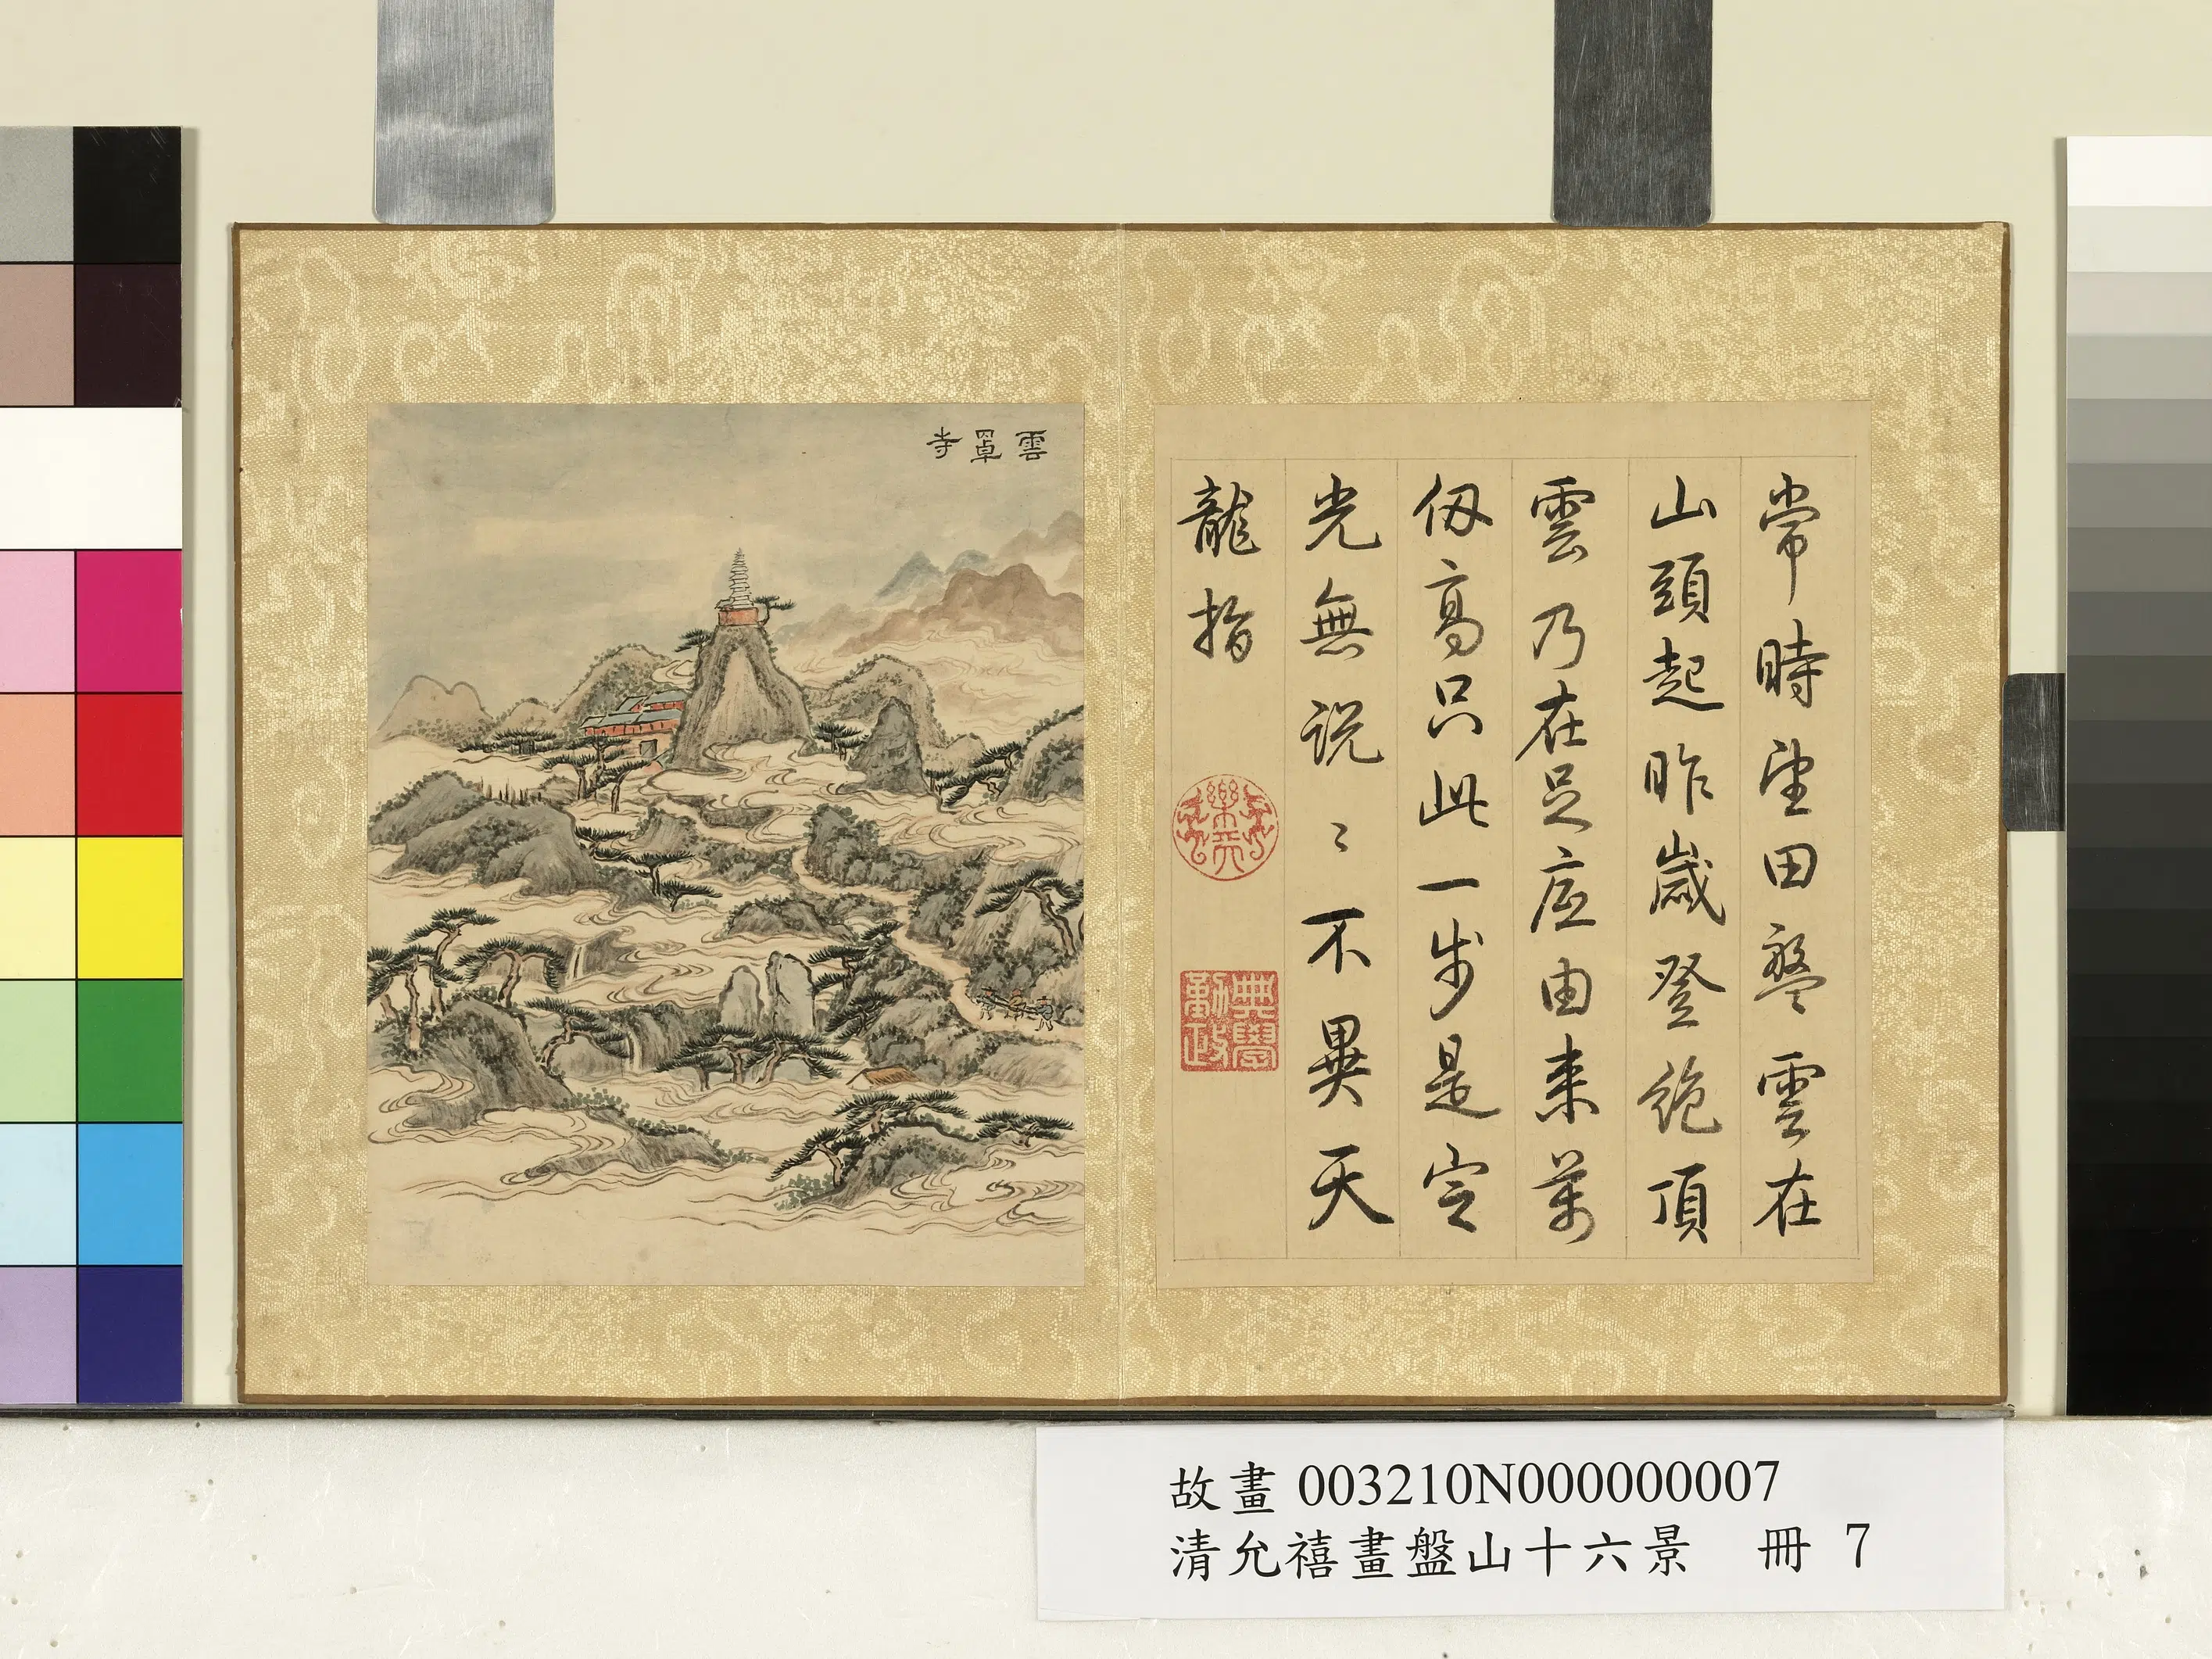 常時望田盤雲在
山頭起昨歲登絕頂
雲乃在足底由來萬
仞高只此一步是定
光無說〻不異天
龍指
樂善
典學
勤政
雲罩寺
故畫 003210N000000007
清允禧畫盤山十六景 冊 7